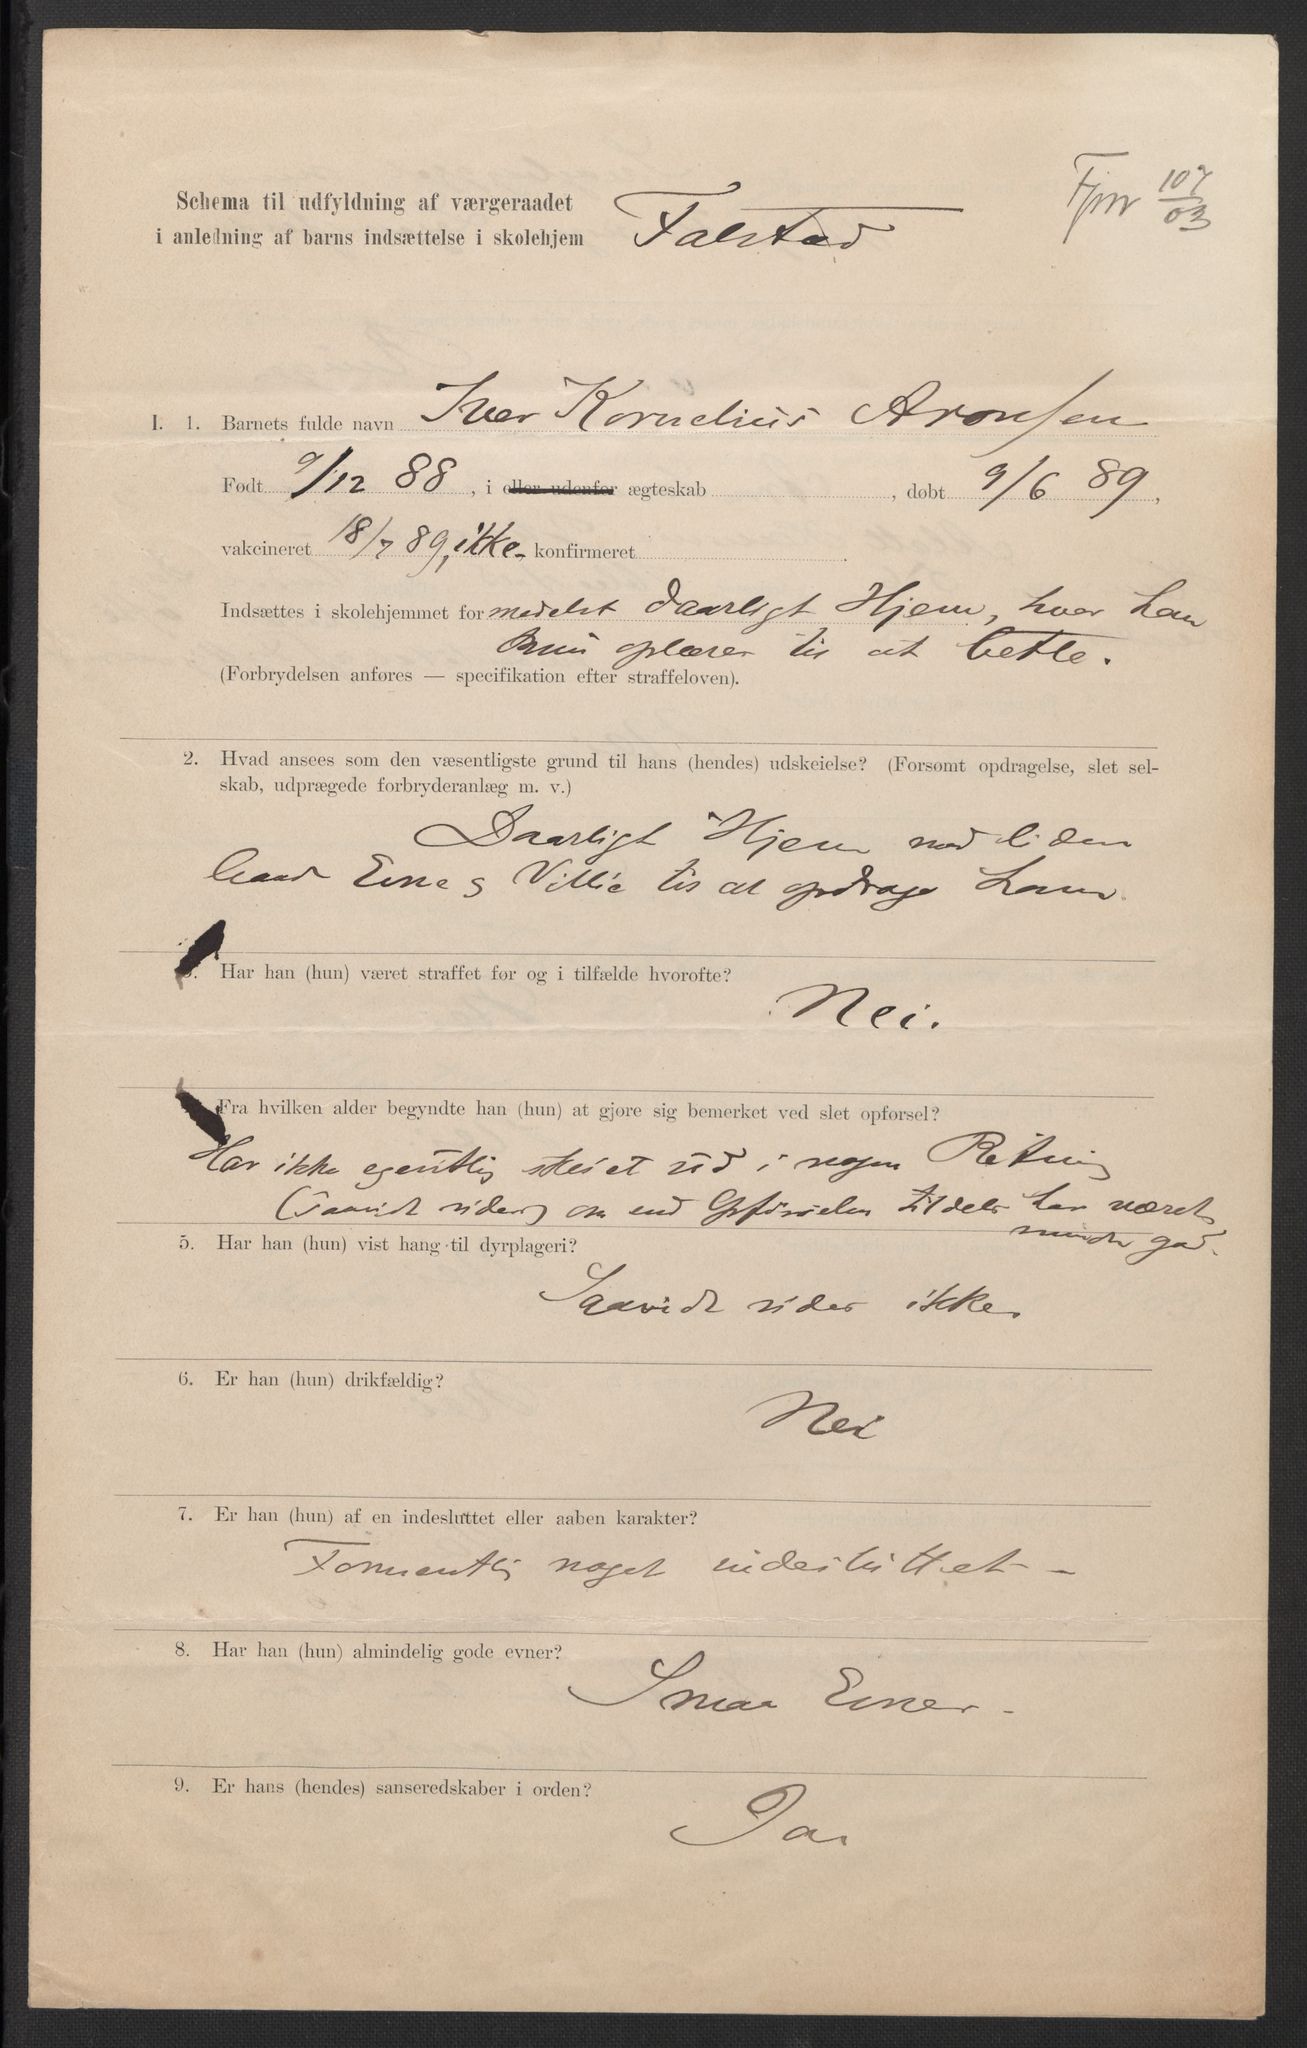 Schema til udfyldning af værgeraadet
i anledning af barns indsættelse i skolehjem Falstad
107
03
I. 1. Barnets fulde navn Iver Kornelius Aronsen
Født 9/12 88, i eller udenfor ægteskab, døbt 9/6 89,
vakcineret 18/7 89, ikke konfirmeret
Indsættes i skolehjemmet formedelst daarligt Hjem, hvor han
kun oplæres til at betle.
(Forbrydelsen anføres — specifikation efter straffeloven).
2. Hvad ansees som den væsentligste grund til hans (hendes) udskeielse? (Forsømt opdragelse, slet sel-
skab, udprægede forbryderanlæg m. v.)
Daarligt Hjem med liden
baade Evne og Villie til at opdrage ham.
3. Har han (hun) været straffet før og i tilfælde hvorofte?
Nei.
Fra hvilken alder begyndte han (hun) at gjøre sig bemerket ved slet opførsel?
Har ikke egentlig skeiet ud i nogen Retning
(saavidt vides) om end Opførselen tildels har været
mindre god.
5. Har han (hun) vist hang til dyrplageri?
Saavidt vides ikke.
6. Er han (hun) drikfældig?
Nei
7. Er han (hun) af en indesluttet eller aaben karakter?
Formentlig noget indesluttet –
8. Har han (hun) almindelig gode evner?
Smaa Evner –
9. Er hans (hendes) sanseredskaber i orden?
Ja.